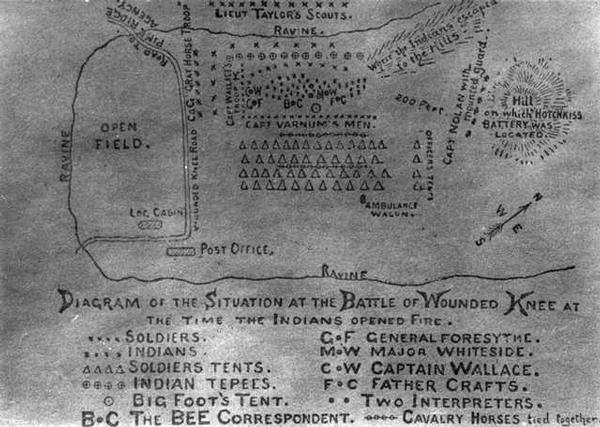 LIEUT TAYLOR'S SCOUTS.
RAVINE.
Where the Indians escaped
to the Hills.
ROAD TO
PINE RIDGE
AGENCY
Co G. GRAY HORSE TROOP
CAPT WALLACE'S
TROOP K
G•W
G•F
B•C
M•W
F•C
200 FEET.
CAPT NOLAN with
mounted Guard.
Hill
on which HOTCHKISS
BATTERY WAS
LOCATED.
OPEN
FIELD.
RAVINE
WOUNDED KNEE ROAD
CAPT VARNUM'S MEN.
OFFICERS TENTS
AMBULANCE
WAGON.
LOG CABIN
POST OFFICE.
N
W
E
S
RAVINE
DIAGRAM OF THE SITUATION AT THE BATTLE OF WOUNDED KNEE AT
THE TIME THE INDIANS OPENED FIRE.
SOLDIERS.
INDIANS.
SOLDIERS TENTS.
INDIAN TEPEES.
BIG FOOT'S TENT.
B•C THE BEE CORRESPONDENT.
G•F GENERAL FORESYTHE.
M•W MAJOR WHITESIDE.
C•W CAPTAIN WALLACE.
F•C FATHER CRAFTS.
TWO INTERPRETERS.
CAVALRY HORSES tied together.